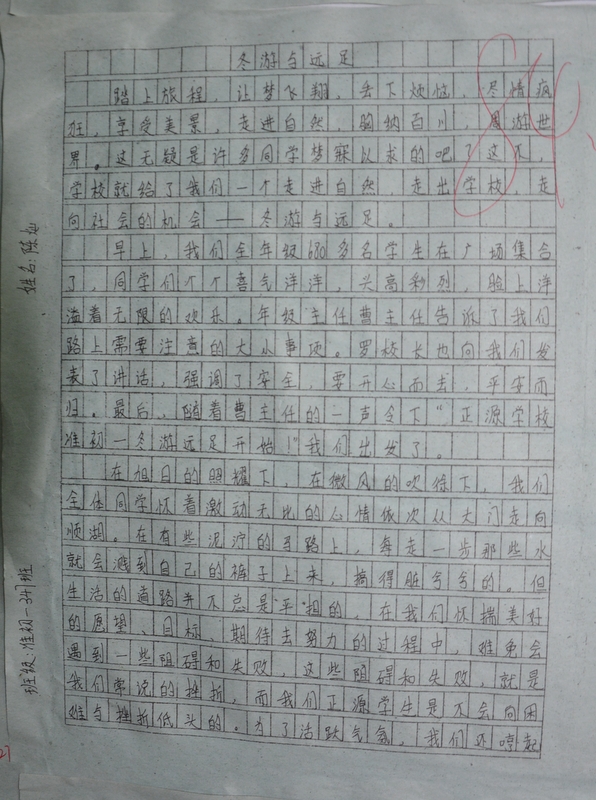 冬游与远足
踏上旅程，让梦飞翔，丢下烦恼，尽情疯
狂，享受美景，走进自然，胸纳百川，周游世
界。这无疑是许多同学梦寐以求的吧？这不，
学校就给了我们一个走进自然，走出学校，走
向社会的机会——冬游与远足。
早上，我们全年级680多名学生在广场集合
了，同学们个个喜气洋洋，兴高彩烈，脸上洋
溢着无限的欢乐。年级主任曹主任告诉了我们
路上需要注意的大小事项。罗校长也向我们发
表了讲话，强调了安全，要开心而去，平安而
归。最后，随着曹主任的一声令下"正源学校
准初一冬游远足开始！"我们出发了。
在旭日的照耀下，在微风的吹徐下，我们
全体同学怀着激动无比的心情依次从大门走向
顺湖。在有些泥泞的马路上，每走一步那些水
就会溅到自己的裤子上来，搞得脏兮兮的。但
生活的道路并不总是平坦的，在我们怀揣美好
的愿望、目标，期待去努力的过程中，难免会
遇到一些阻碍和失败，这些阻碍和失败，就是
我们常说的挫折，而我们正源学生是不会向困
难与挫折低头的。为了活跃气氛，我们还哼起
姓名：陈灿
班级：准初一347班